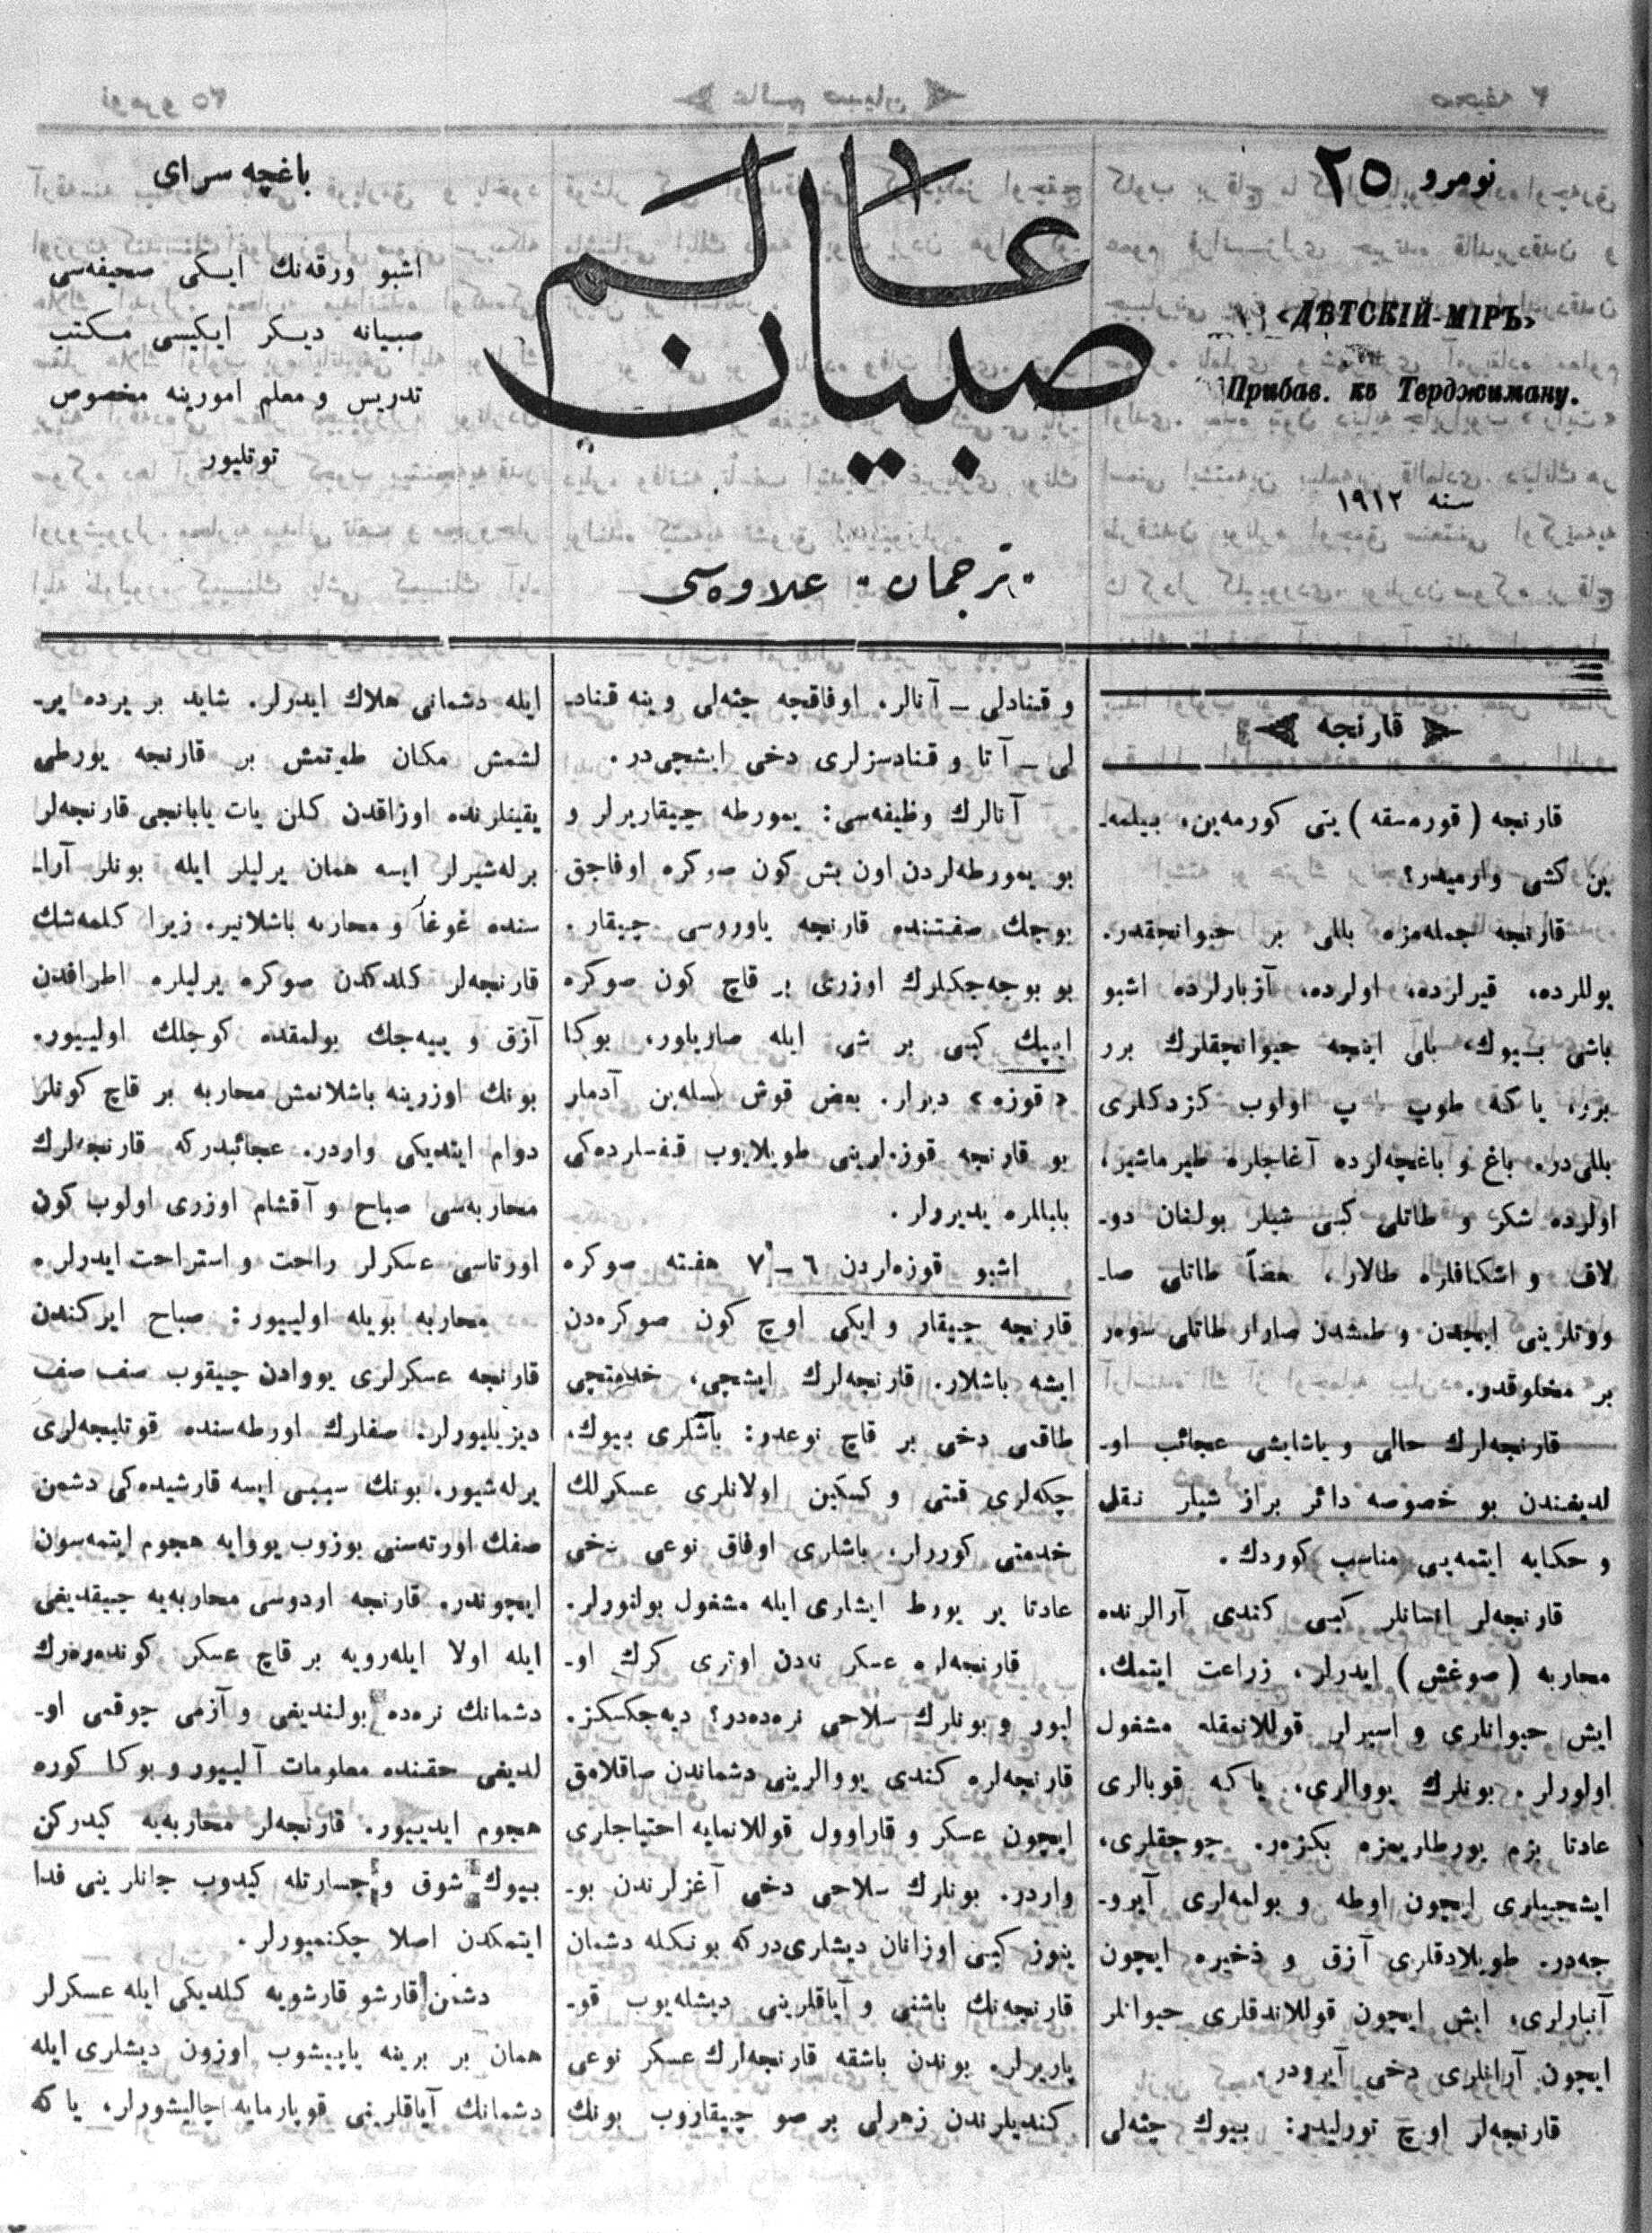 نومرو ٢٥
«ДѢТСКІЙ-МІРЪ»
Прибав. къ Терджиману.
سنه ١٩١٢
عالم صبيان
„ترجمان“ علاوه‌سى
باغچه سراى
اشبو ورقه‌نك ايكى صحيفه‌سى
صبيانه ديكر ايكيسى مكتب
تدريس و معلم امورينه مخصوص
توتليور
قارنجه
قارنجه (قورمسقه) يتى كورمه‌ين، بيلمه‌ـ
ين كشى وارميدر؟
قارنجه جمله‌مزه بللى بر حيوانجقدر.
يوللرده، قيرلرده، اولرده، آزبارلرده اشبو
باشى بيوك، بلى اينجه حيوانچقلرك برر
برر، ياكه طوپ طوپ اولوب كزدكلرى
بللى‌در. باغ و باغچه‌لرده آغاچلره طيرماشير،
اولرده شكر و طاتلى كبى شيلر بولنان دوـ
لاف و اشكافلره طالار، طاتلى صاـ
ووتلرينى ايچدن و طيشدن صارار طاتلى سوه‌ر
بر مخلوقدر.
قارنجه‌لرك حالى و ياشايشى عجائب اوـ
لديغندن بو خصوصه دائر براز شيلر نقل
و حكايه ايتمه‌يى مناسب كوردك.
قارنجه‌لر انسانلر كبى كندى آرالرنده
محاربه (صوغش) ايدرلر، زراعت ايتمك،
ايش حيوانلرى و اسيرلر قوللانمقله مشغول
اولورلر. بونلرك يووالرى، ياكه قوبالرى
عادتا بزم يورطلريمزه بكزه‌ر. چوجقلرى،
ايشچيلرى ايچون اوطه و بولمه‌لرى آيروـ
جه‌در. طوپلادقلرى آزق و ذخيره ايچون
آنبارلرى، ايش ايچون قوللاندقلرى حيوانلر
ايچون آرانلرى دخى آيرودر.
قارنجه‌لر اوچ تورليدر: بيوك جثه‌لى
و قنادلى ـ آنالر. اوفاقجه جثه‌لى وينه قنادـ
لى ـ آتا و قنادسزلرى دخى ايشچى‌در.
آنالرك وظيفه‌سى: يمورطه چيقاريرلر و
بو يمورطه‌لردن اون بش كون صوكره اوفاجق
بوجك صفتنده قارنجه ياوروسى چيقار.
بو بوجه‌جكلرك اوزرى بر قاچ كون صوكره
ايپك كبى بر شى ايله صاريلور، بوكا
«قوزه» ديرلر. بعض قوش بسله‌ين آدملر
بو قارنجه قوزه‌لرينى طوپلايوب قفسلرده‌كى
بابالره يديرولر.
اشبو قوزه‌لردن ٦ ـ ٧ هفته صوكره
قارنجه چيقار و ايكى اوچ كون صوكره‌دن
ايشه باشلار. قارنجه‌لرك ايشچى، خدمتچى
طاقمى دخى بر قاچ نوعدر: باشلرى بيوك،
چكه‌لرى قتى و كسكين اولانلرى عسكرلك
خدمتى كوررلر، باشلرى اوفاق نوعى دخى
عادتا ير يورط ايشلرى ايله مشغول بولنورلر.
قارنجه‌لره عسكر نه‌دن اوترى كرك اوـ
ليور و بونلرك سلاحى نره‌ده‌در؟ ديه‌جكسكز.
قارنجه‌لره كندى يووالرينى دشماندن صاقلامق
ايچون عسكر و قاراوول قوللانمايه احتياجلرى
واردر. بونلرك سلاحى دخى آغزلرندن بوـ
ينوز كبى اوزانان ديشلرى‌دركه بونكله دشمان
قارنجه‌نك باشنى و آياقلرينى ديشله‌يوب قوـ
پاريرلر. بوندن باشقه قارنجه‌لرك عسكر نوعى
كنديلرندن زهرلى بر صو چيقاروب بونك
ايله دشمانى هلاك ايدرلر. شايد بر يرده يرـ
لشمش مكان طوتمش بر قارنجه يورطى
يقينلرنده اوزاقدن كلن يات يابانجى قارنجه‌لر
برله‌شيرلر ايسه همان يرليلر ايله بونلر آراـ
سنده غوغا و محاربه باشلانير. زيرا كلمه‌شك
قارنجه‌لر كلدكدن صوكره يرليلره اطرافدن
آزق و ييه‌جك بولمقده كوچلك اولييور.
بونك اوزرينه باشلانمش محاربه بر قاچ كونلر
دوام ايتديكى واردر. عجائبدركه قارنجه‌لرك
محاربه‌سى صباح و آقشام اوزرى اولوب كون
اورتاسى عسكرلر راحت و استراحت ايدرلر.
محاربه بويله اولييور: صباح ايركندن
قارنجه عسكرلرى يووادن چيقوب صف صف
ديزيليورلر. صفلرك اورطه‌سنده قوتليجه‌لرى
يرله‌شيور. بونك سببى ايسه قارشيده‌كى دشمن
صفك اورته‌سنى بوزوب يووايه هجوم ايتمه‌سون
ايچوندر. قارنجه اردوسى محاربه‌يه چيقديغى
ايله اولا ايله‌رويه بر قاچ عسكر كونده‌ره‌رك
دشمانك نره‌ده بولنديغى و آزمى چوقمى اوـ
لديغى حقنده معلومات آلييور و بوكا كوره
هجوم ايدييور. قارنجه‌لر محاربه‌يه كيدركن
بيوك شوق و جسارتله كيدوب جانلرينى فدا
ايتمكدن اصلا چكنميورلر.
دشمن قارشو قارشويه كلديكى ايله عسكرلر
همان بر برينه ياپيشوب اوزون ديشلرى ايله
دشمانك آياقلرينى قوپارمايه چاليشورلر، ياكه